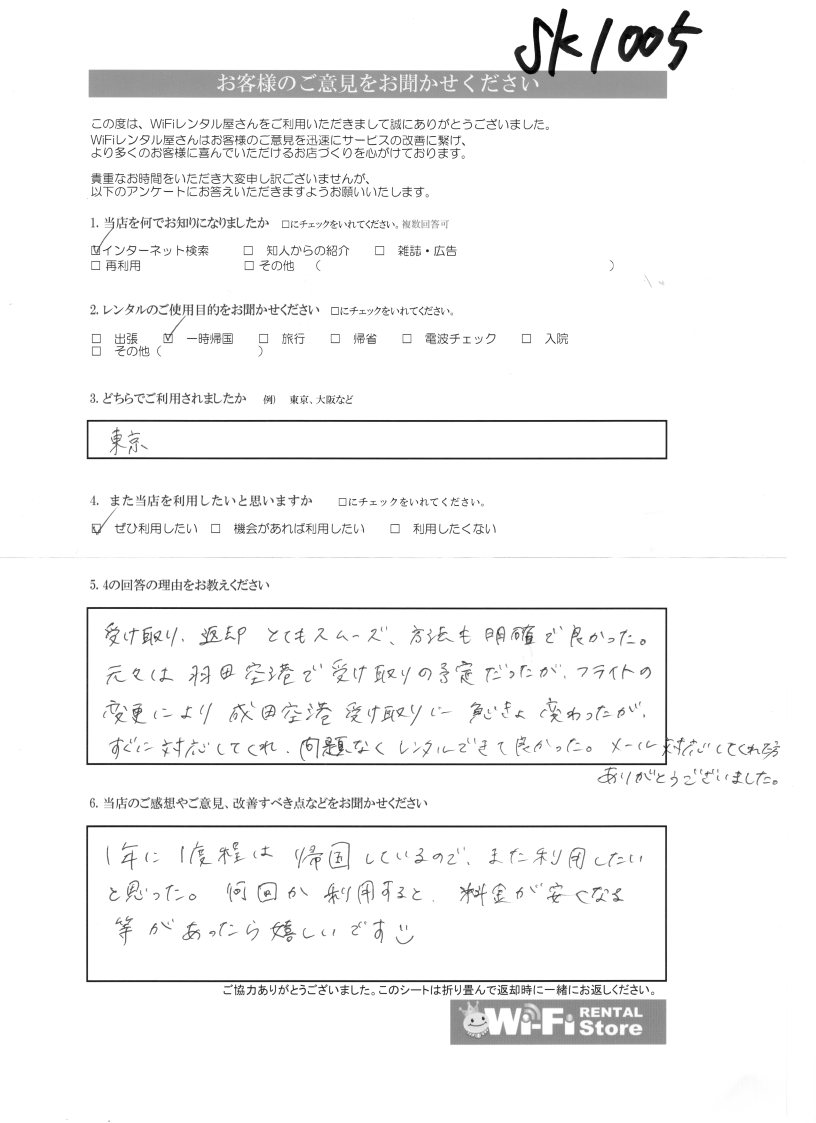 SK1005
お客様のご意見をお聞かせください
この度は、WiFiレンタル屋さんをご利用いただきまして誠にありがとうございました。
WiFiレンタル屋さんはお客様のご意見を迅速にサービスの改善に繋げ、
より多くのお客様に喜んでいただけるお店づくりを心がけております。
貴重なお時間をいただき大変申し訳ございませんが、
以下のアンケートにお答えいただきますようお願いいたします。
1. 当店を何でお知りになりましたか □にチェックをいれてください。複数回答可
☑インターネット検索 □ 知人からの紹介 □ 雑誌・広告
□ 再利用 □ その他 ( )
2. レンタルのご使用目的をお聞かせください □にチェックをいれてください。
□ 出張 ☑ 一時帰国 □ 旅行 □ 帰省 □ 電波チェック □ 入院
□ その他 ( )
3. どちらでご利用されましたか 例) 東京、大阪など
東京
4. また当店を利用したいと思いますか □にチェックをいれてください。
☑ ぜひ利用したい □ 機会があれば利用したい □ 利用したくない
5. 4の回答の理由をお教えください
受け取り、返却 とてもスムーズ、方法も明確で良かった。
元々は羽田空港で受け取りの予定だったが、フライトの
変更により成田空港受け取りに急きょ変わったが、
すぐに対応してくれ、問題なくレンタルできて良かった。メール対応してくれた方
ありがとうございました。
6. 当店のご感想やご意見、改善すべき点などをお聞かせください
1年に1度程は帰国しているので、また利用したい
と思った。何回か利用すると、料金が安くなる
等があったら嬉しいです
ご協力ありがとうございました。このシートは折り畳んで返却時に一緒にお返しください。
Wi-Fi RENTAL Store